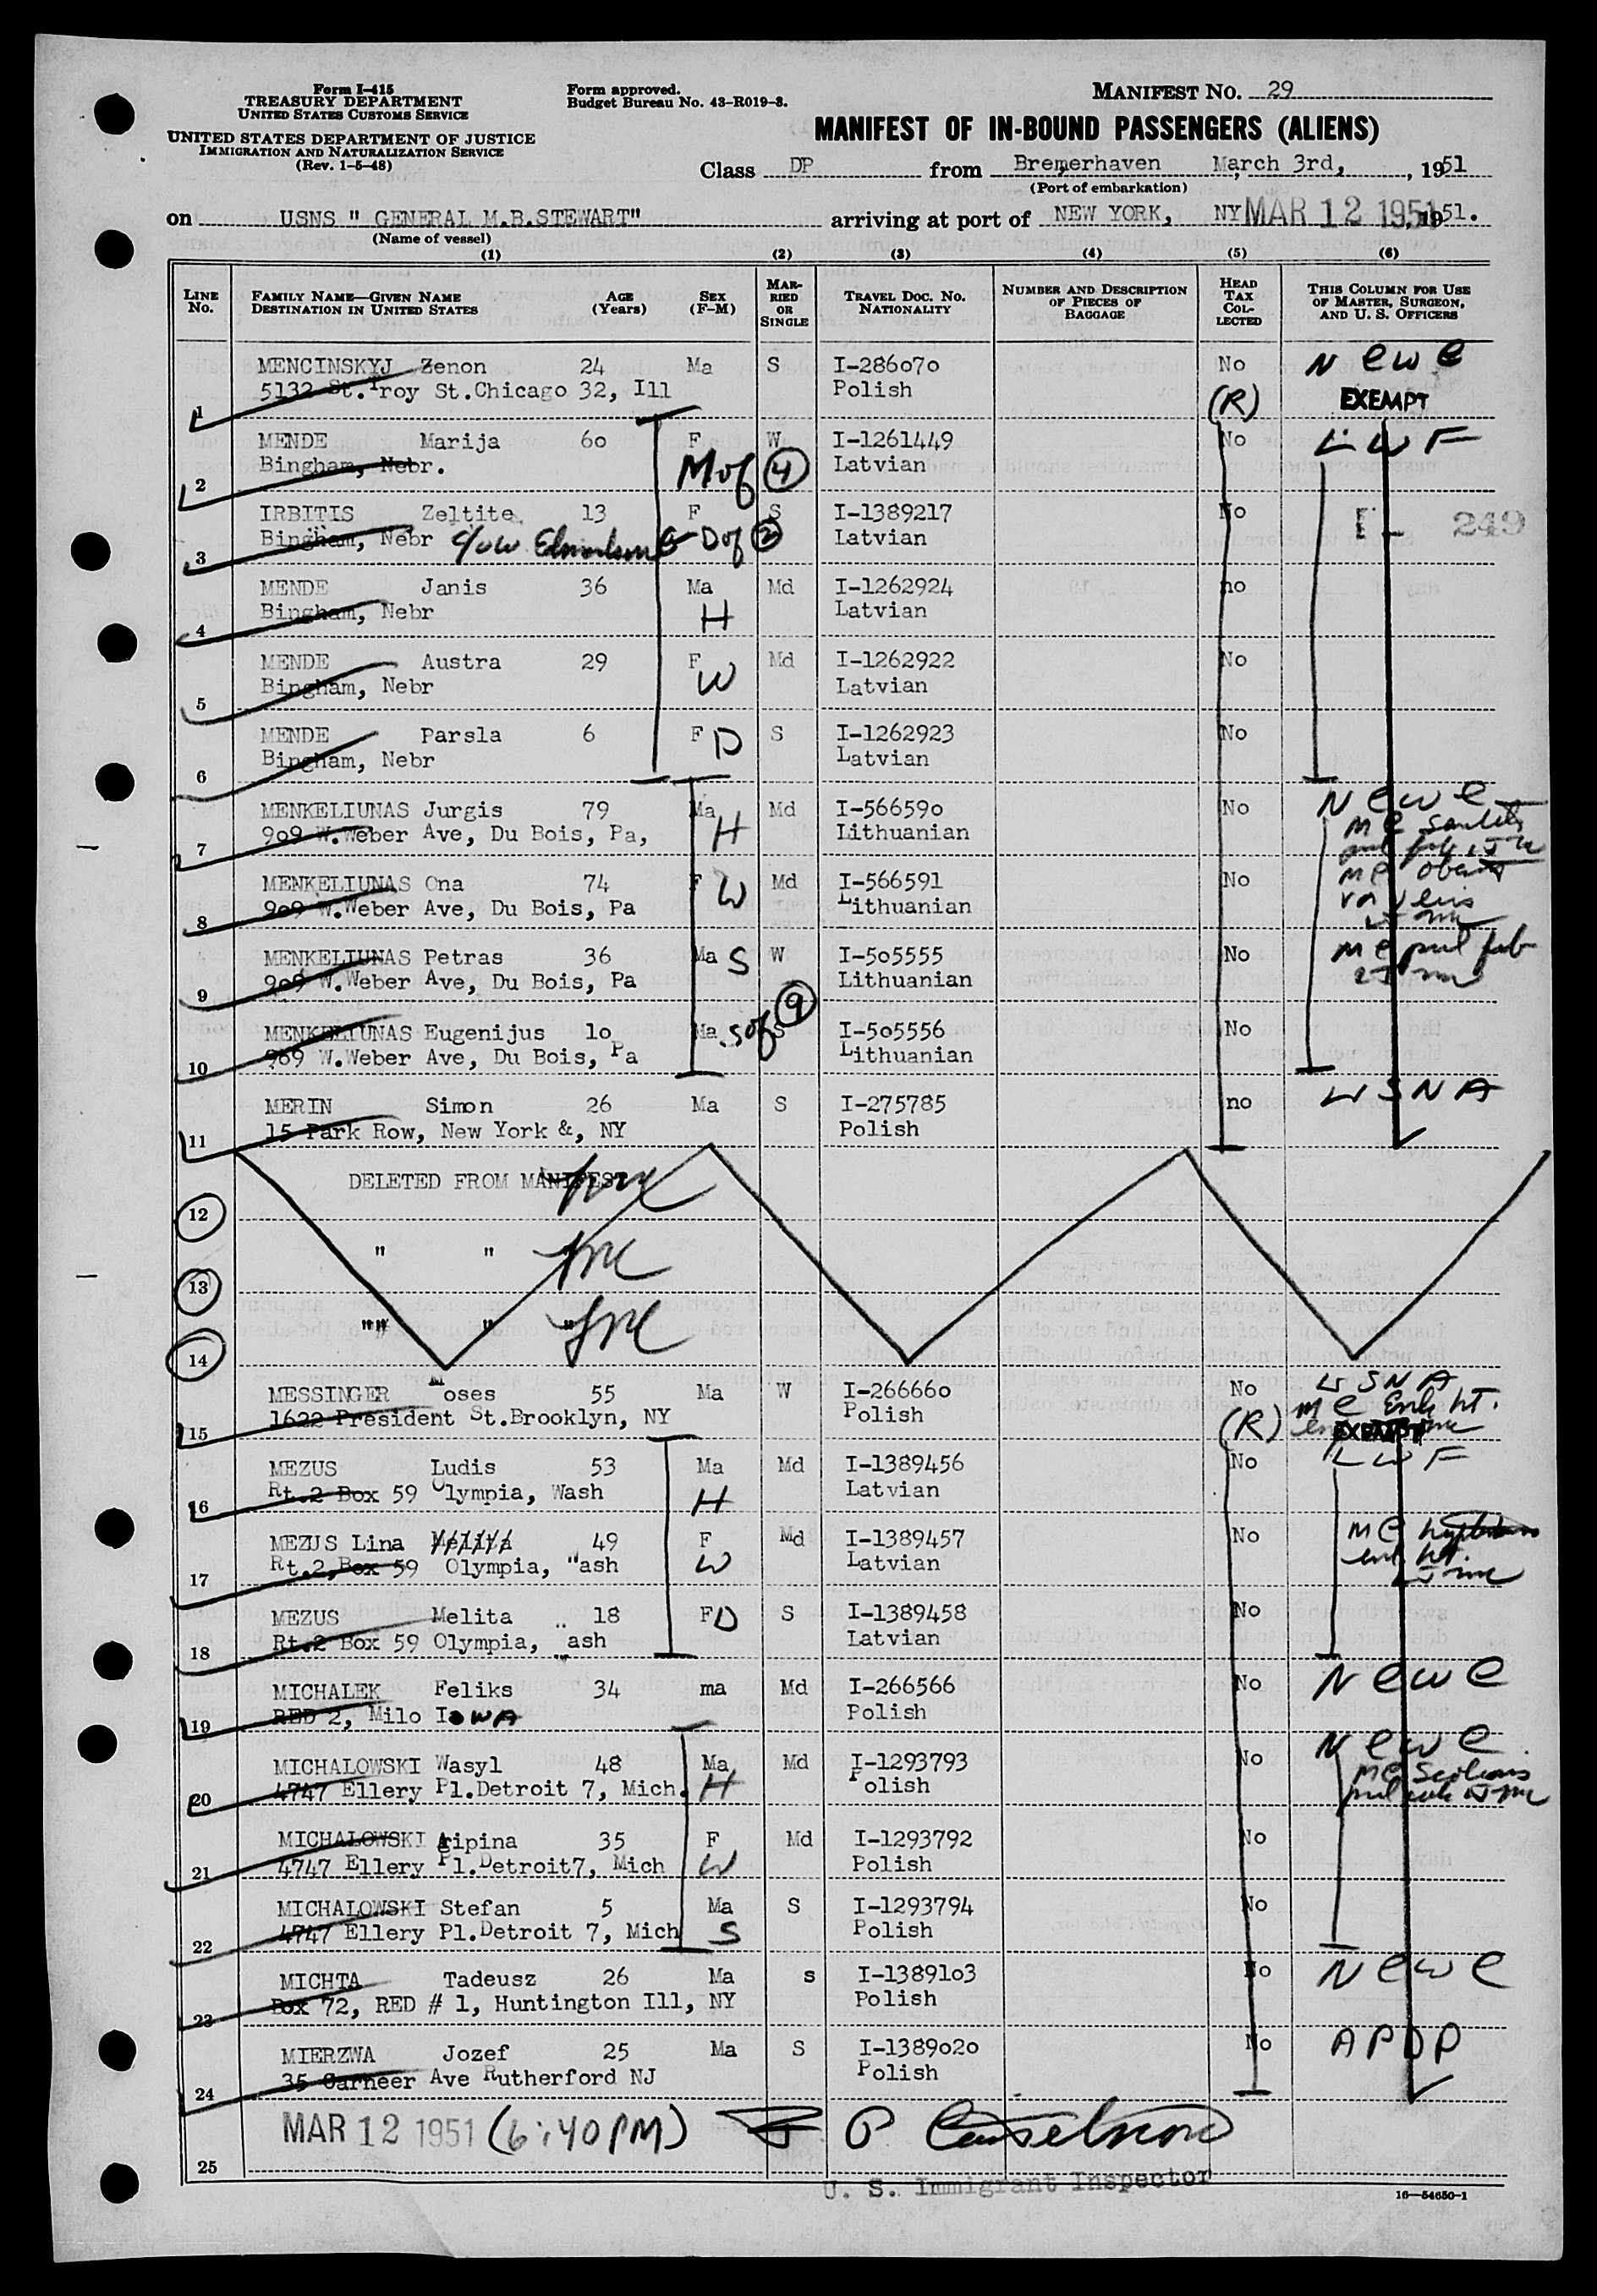 Form I-415
TREASURY DEPARTMENT
UNITED STATES CUSTOMS SERVICE
UNITED STATES DEPARTMENT OF JUSTICE
IMMIGRATION AND NATURALIZATION SERVICE
(Rev. 1-5-48)
Form approved.
Budget Bureau No. 43-R019-3.
MANIFEST NO. 29
MANIFEST OF IN-BOUND PASSENGERS (ALIENS)
Class DP from Bremerhaven March 3rd, , 1951
(Port of embarkation)
on USNS " GENERAL M.B.STEWART" arriving at port of NEW YORK, NY MAR 12 1951 , 1951.
(Name of vessel)
(1) (2) (3) (4) (5) (6)
LINE NO. FAMILY NAME—GIVEN NAME DESTINATION IN UNITED STATES AGE (Years) SEX (F-M) MARRIED OR SINGLE TRAVEL DOC. NO. NATIONALITY NUMBER AND DESCRIPTION OF PIECES OF BAGGAGE HEAD TAX COLLECTED THIS COLUMN FOR USE OF MASTER, SURGEON, AND U. S. OFFICERS
MENCINSKYJ Zenon 24 Ma S I-286070 No N C W C
1 5132 St.Troy St.Chicago 32, Ill Polish (R) EXEMPT
MENDE Marija 60 F W I-1261449 No L W F
2 Bingham, Nebr. M of 4 Latvian
IRBITIS Zeltite 13 F S I-1389217 No 249
3 Bingham, Nebr c/o W Edmundson G-D of 2 Latvian
MENDE Janis 36 Ma Md I-1262924 no
4 Bingham, Nebr H Latvian
MENDE Austra 29 F Md I-1262922 No
5 Bingham, Nebr W Latvian
MENDE Parsla 6 F D S I-1262923 No
6 Bingham, Nebr Latvian
MENKELIUNAS Jurgis 79 Ma Md I-566590 No N C W C
7 909 W.Weber Ave, Du Bois, Pa, H Lithuanian
MENKELIUNAS Ona 74 F W Md I-566591 No
8 909 W.Weber Ave, Du Bois, Pa Lithuanian
MENKELIUNAS Petras 36 Ma S W I-505555 No M C pul fib
9 909 W.Weber Ave, Du Bois, Pa Lithuanian
MENKELIUNAS Eugenijus 10 Ma S of 9 S I-505556 No
10 969 W.Weber Ave, Du Bois, Pa Lithuanian
MERIN Simon 26 Ma S I-275785 no U S N A
11 15 Park Row, New York &, NY Polish
DELETED FROM MANIFEST
12
" "
13
"" " "
14
MESSINGER Moses 55 Ma W I-266660 No U S N A
15 1622 President St.Brooklyn, NY Polish (R) EXEMPT
MEZUS Ludis 53 Ma Md I-1389456 No L W F
16 Rt.2 Box 59 Olympia, Wash H Latvian
MEZUS Lina 49 F Md I-1389457 No
17 Rt.2,Box 59 Olympia, "ash W Latvian
MEZUS Melita 18 F D S I-1389458 No
18 Rt.2 Box 59 Olympia, "ash Latvian
MICHALEK Feliks 34 ma Md I-266566 No N C W C
19 RED 2, Milo IoWA Polish
MICHALOWSKI Wasyl 48 Ma Md I-1293793 No N C W C
20 4747 Ellery Pl.Detroit 7, Mich. H Polish
MICHALOWSKI Agipina 35 F Md I-1293792 No
21 4747 Ellery Pl.Detroit7, Mich W Polish
MICHALOWSKI Stefan 5 Ma S I-1293794 No
22 4747 Ellery Pl.Detroit 7, Mich S Polish
MICHTA Tadeusz 26 Ma s I-1389103 No N C W C
23 Box 72, RED # 1, Huntington Ill, NY Polish
MIERZWA Jozef 25 Ma S I-1389020 No A P D P
24 35 Carneer Ave Rutherford NJ Polish
MAR 12 1951 (6:40PM)
25
U. S. Immigrant Inspector
16—54650-1